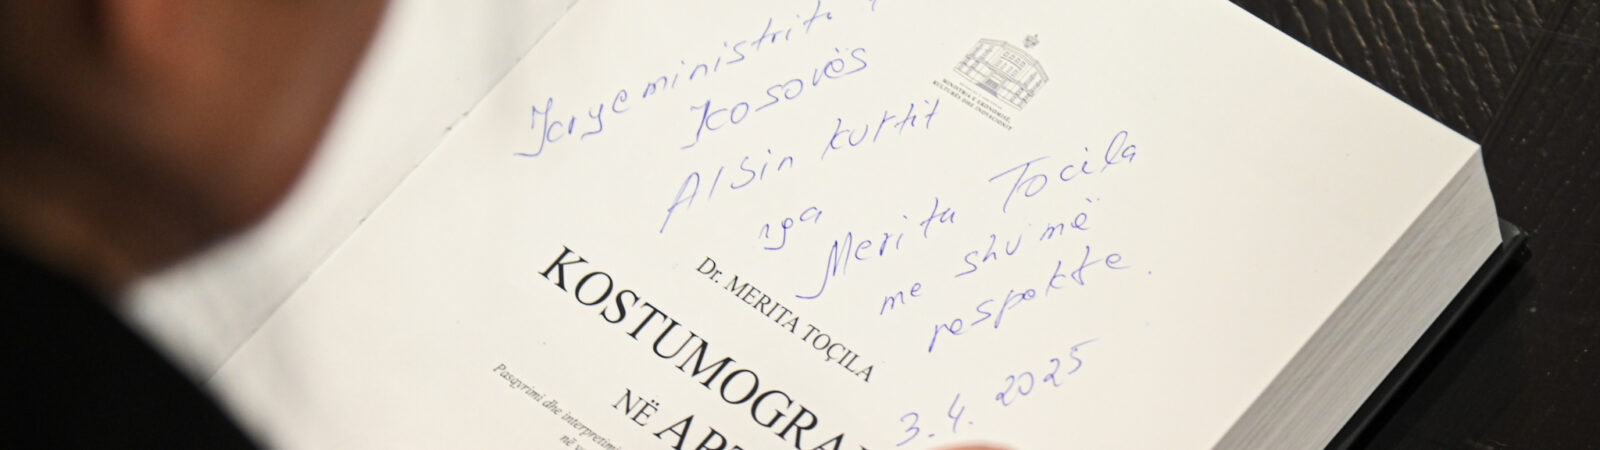 Kryeministrit
Kosovës
Albin Kurtit
nga
Merita Tocila
me shumë
respekte.
3.4.2025
MINISTRIA E EKONOMISË,
KULTURËS DHE INOVACIONIT
Dr. MERITA TOÇILA
KOSTUMOGRA
NË ART
Pasqyrimi dhe interpretimi
në